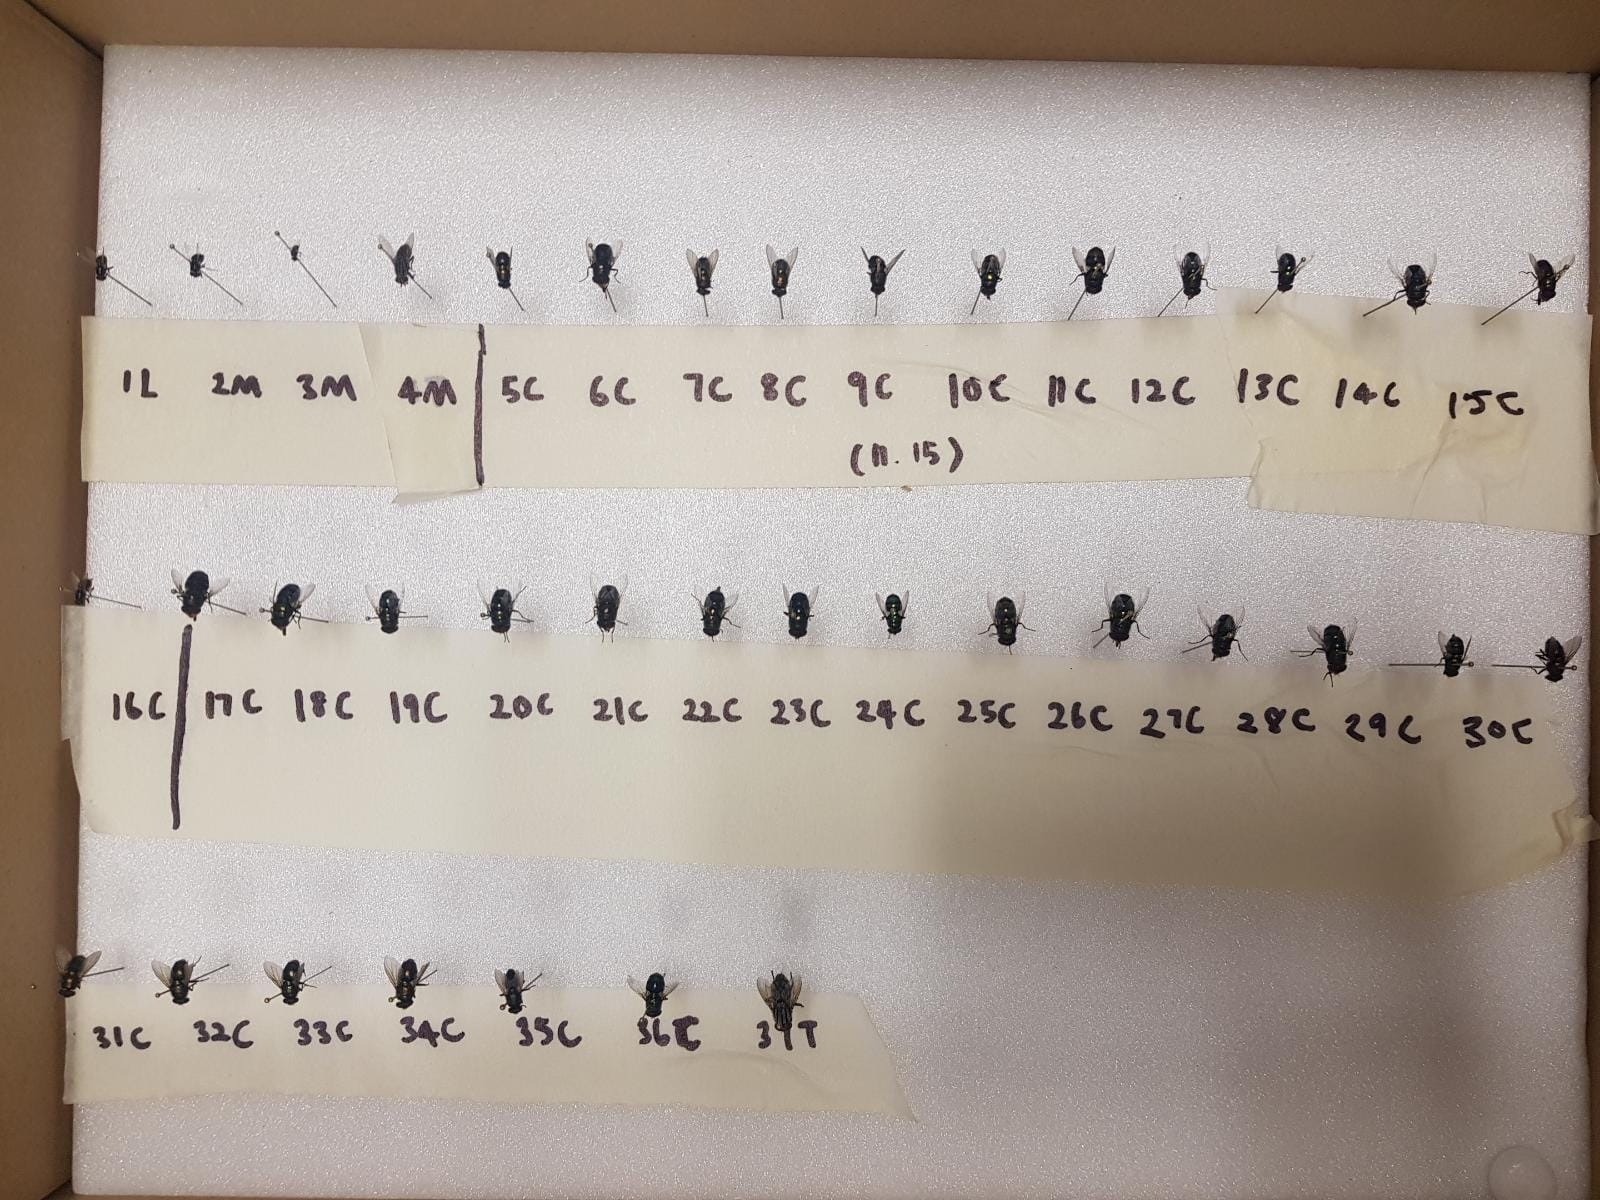 1L 2M 3M 4M 5C 6C 7C 8C 9C 10C 11C 12C 13C 14C 15C
(11.15)
16C 17C 18C 19C 20C 21C 22C 23C 24C 25C 26C 27C 28C 29C 30C
31C 32C 33C 34C 35C 36C 37T